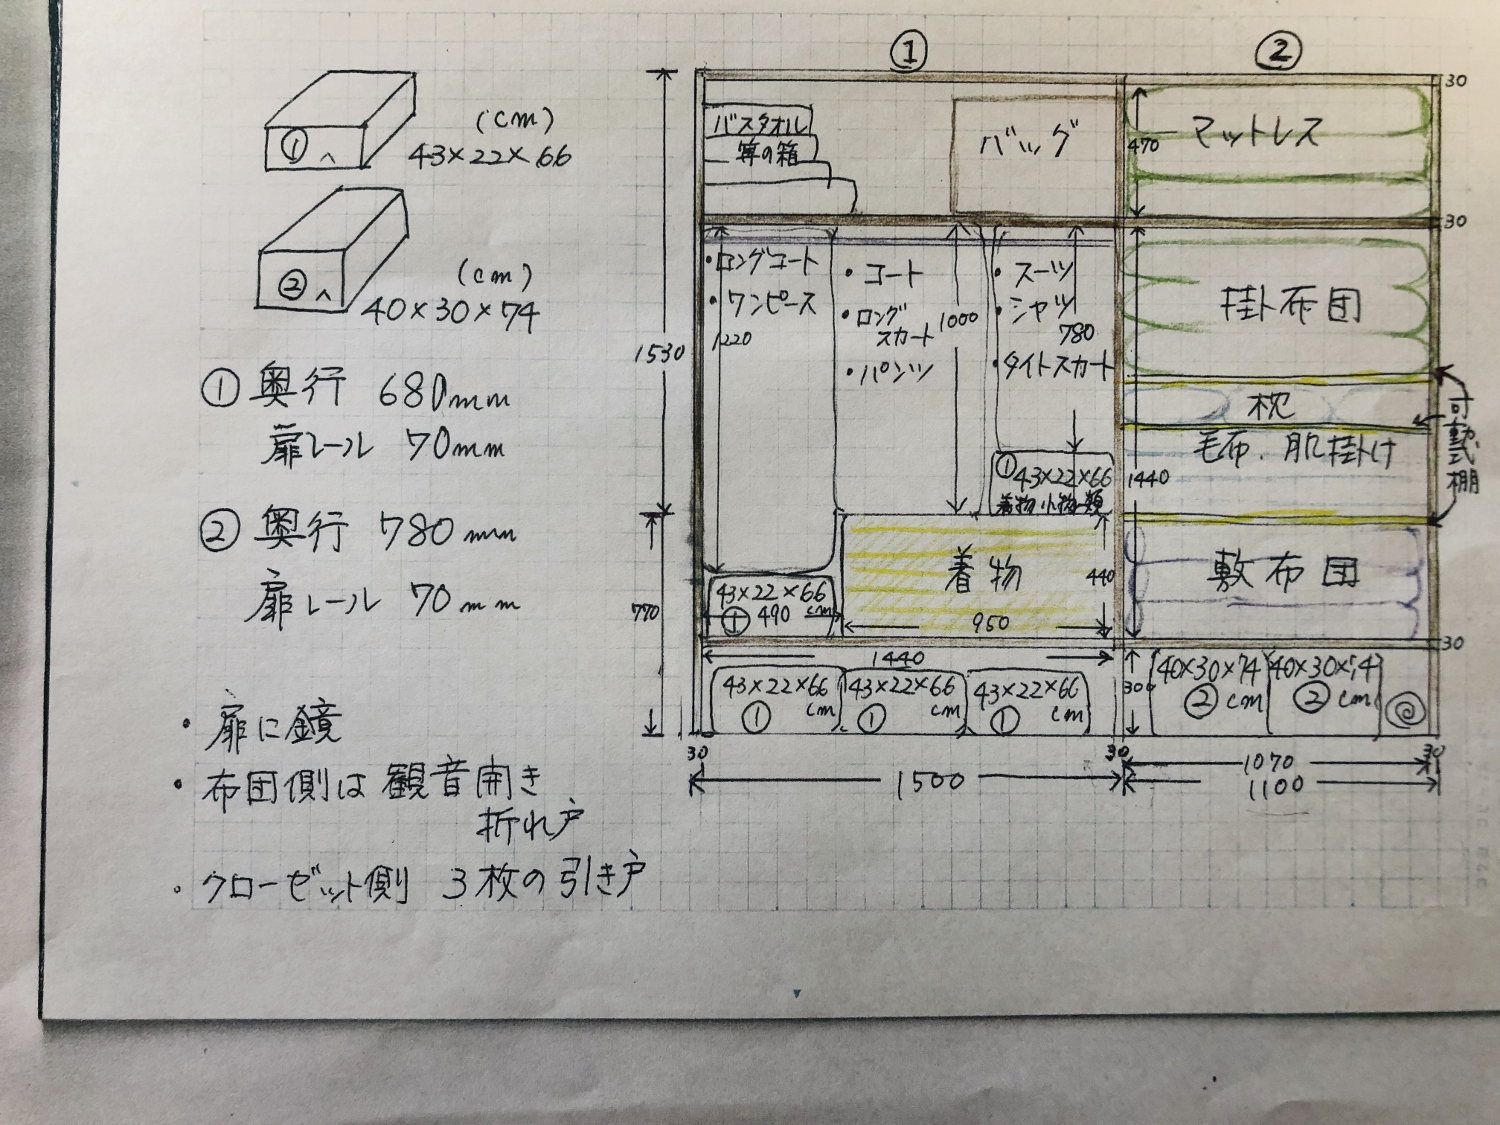 ①
②
30
(cm)
① 43×22×66
(cm)
② 40×30×74
① 奥行 680mm
扉レール 70mm
② 奥行 780mm
扉レール 70mm
・扉に鏡
・布団側は観音開き
折れ戸
・クローゼット側 3枚の引き戸
1530
770
バスタオル
等の箱
バッグ
470
マットレス
30
・ロングコート
・ワンピース
1220
・コート
・ロング
スカート
・パンツ
1000
・スーツ
・シャツ
780
・タイトスカート
掛布団
枕
毛布、肌掛け
可動式棚
1440
① 43×22×66
着物小物類
着物
440
950
敷布団
43×22×66
① 490 cm
30
1440
43×22×66
① cm
43×22×66
① cm
43×22×66
① cm
300
40×30×74
② cm
40×30×74
② cm
30
30
30
1500
1070
1100